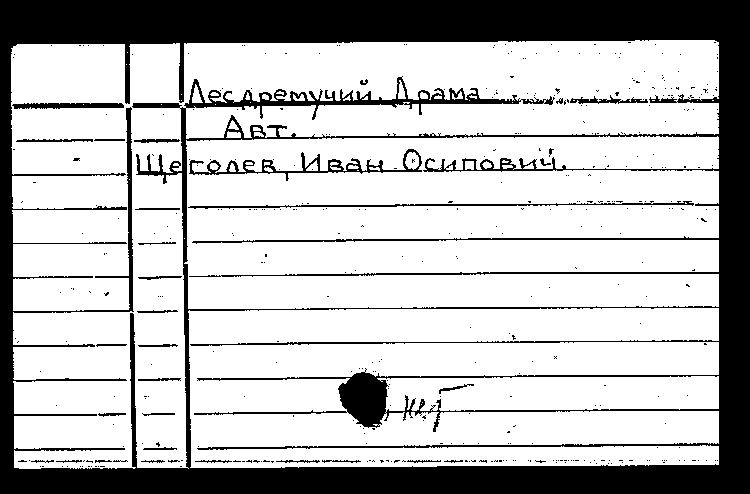 Лес дремучий. Драма
Авт.
Щеголев, Иван Осипович.